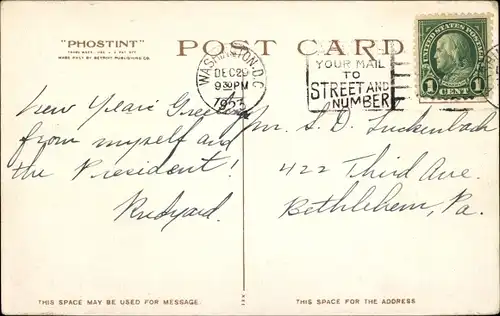 "PHOSTINT"
MADE ONLY BY DETROIT PUBLISHING CO.
POST CARD
WASHINGTON, D.C.
DEC 29
9 30 PM
YOUR MAIL
TO
STREET AND
NUMBER
UNITED STATES POSTAGE
1 CENT 1
New Years Greetings
from myself and
the President!
Rudyard.
Mr. S. D. Luckenbach
422 Third Ave.
Bethlehem, Pa.
THIS SPACE MAY BE USED FOR MESSAGE.
THIS SPACE IS FOR THE ADDRESS